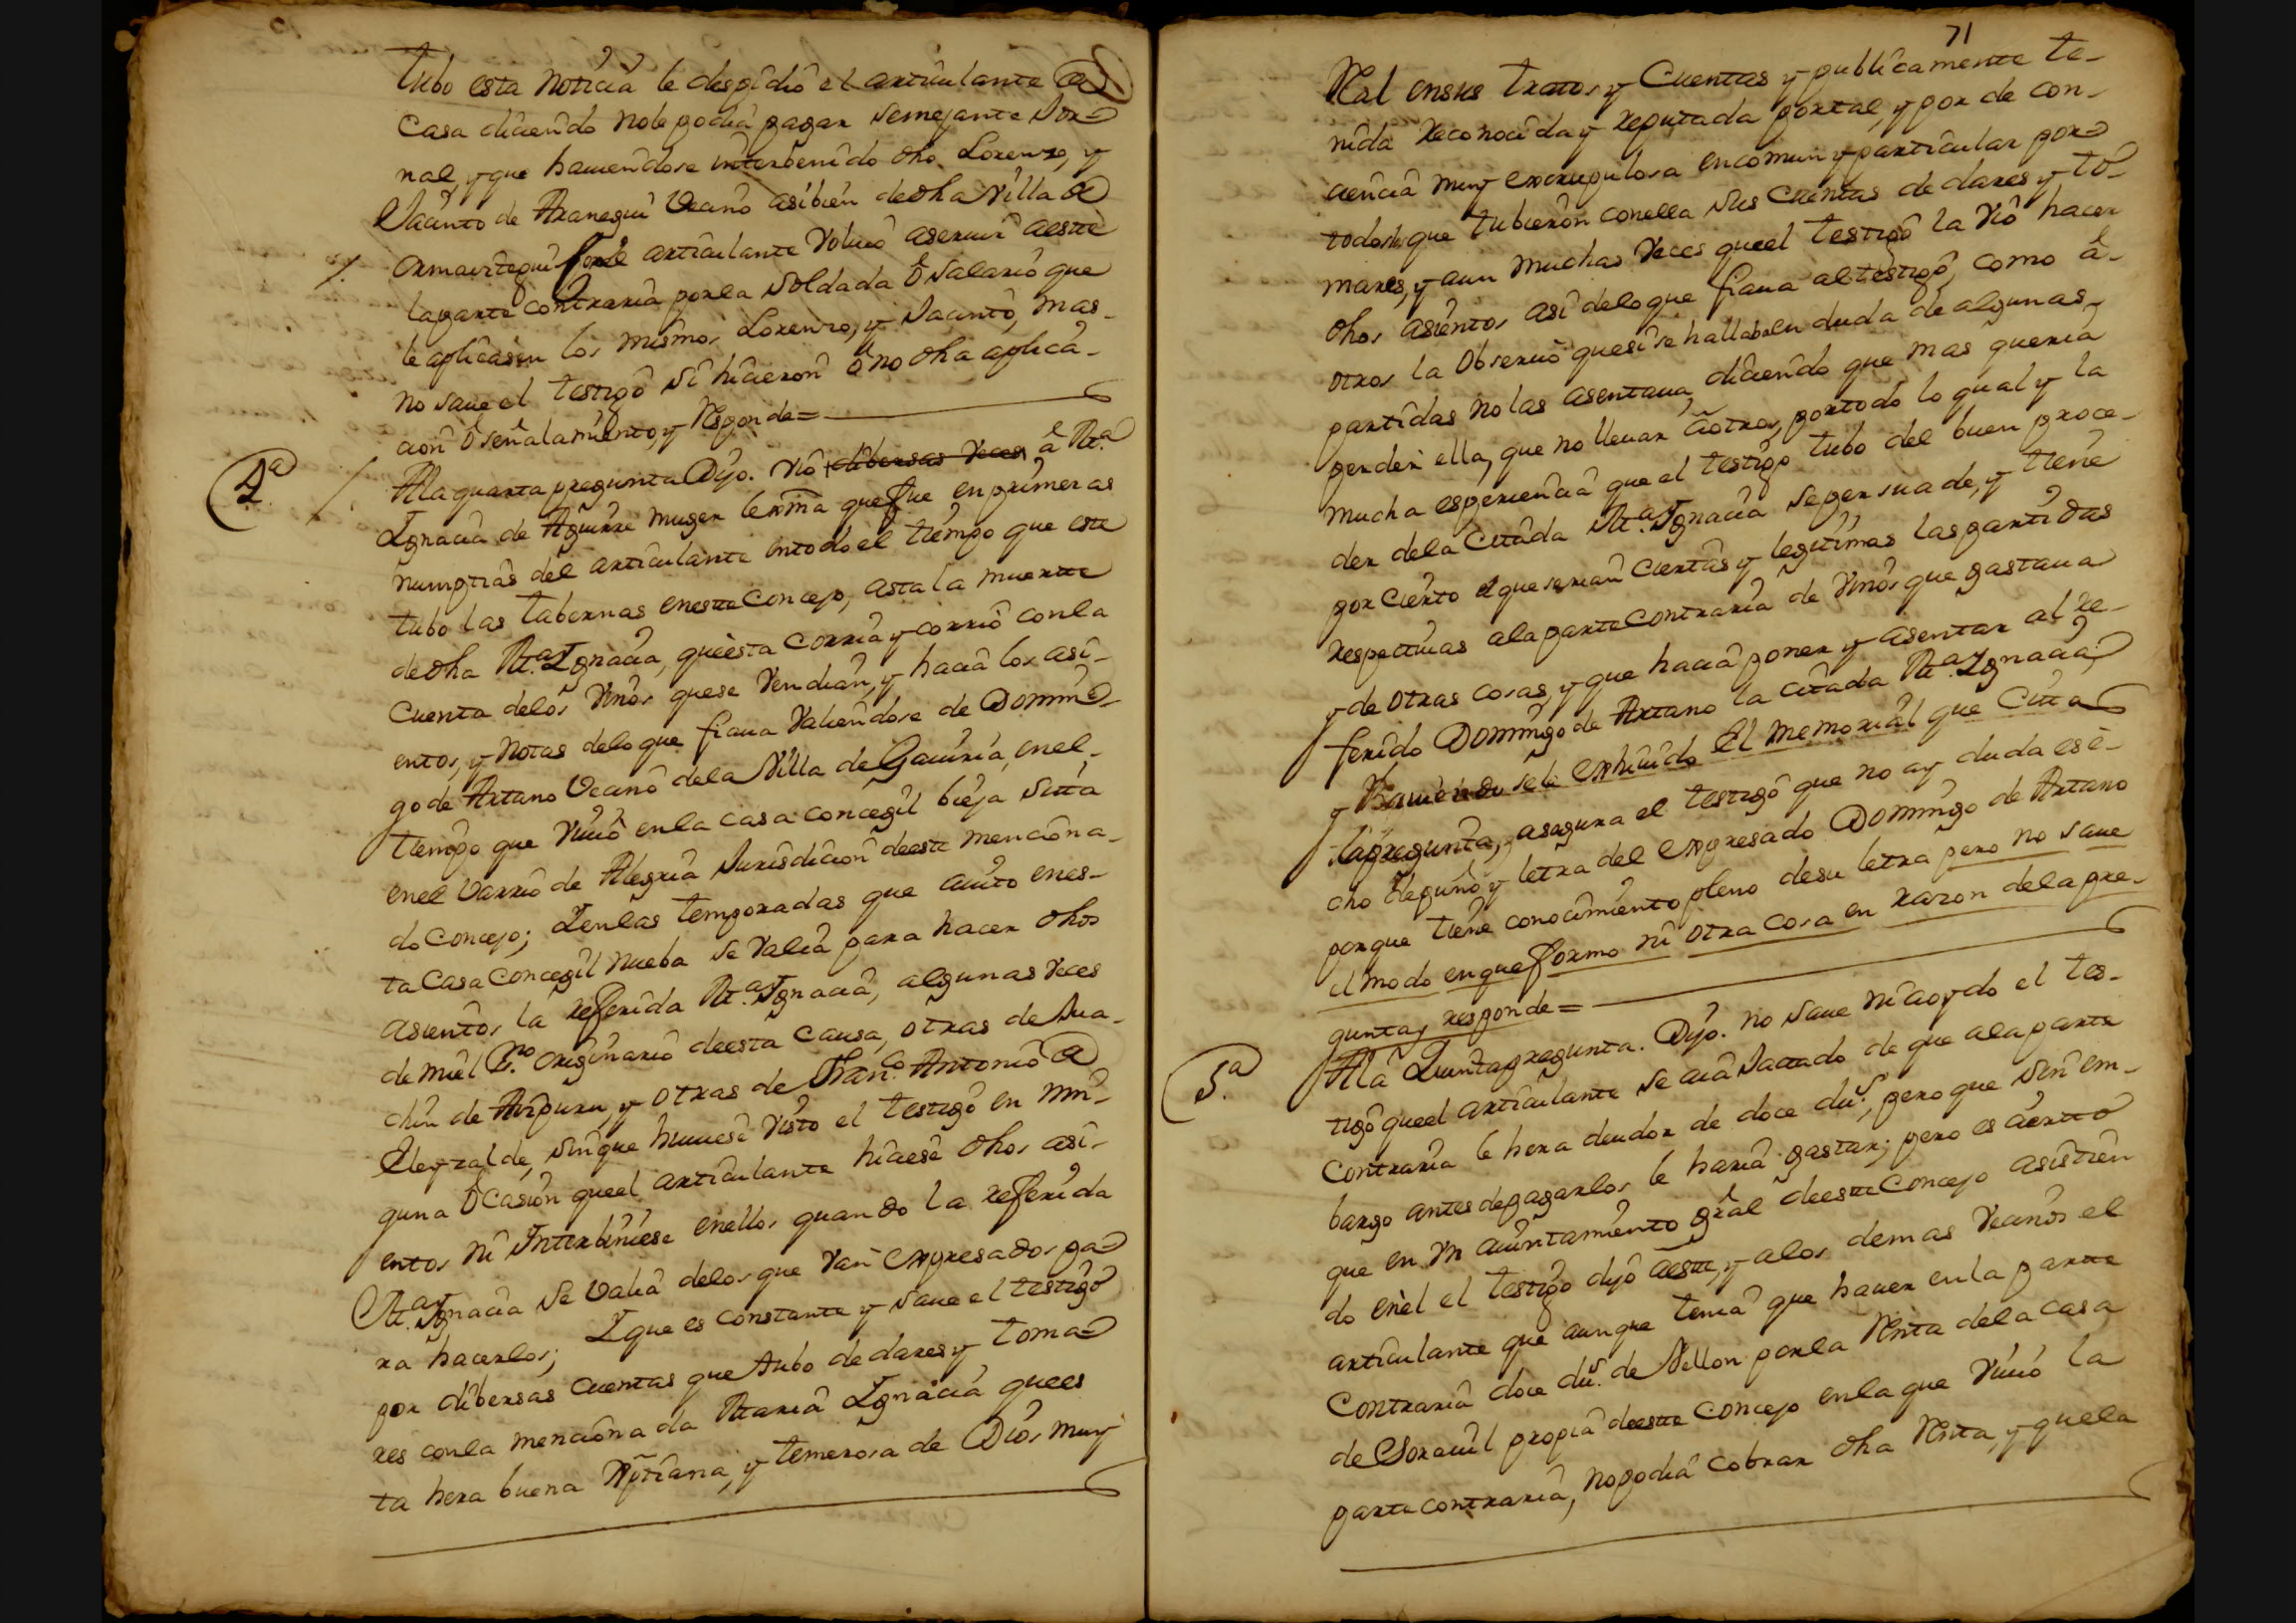 tubo esta noticia le despidio el articulante de
Casa diciendo nole podia pagar semejante Jor-
nal, y que haviendose interbenido dho Lorenzo, y
Jacinto de Aranegui Vecino asibien de dha Villa de
Ormaiztegui el articulante Volvio aservir aeste
laparte contraria porla Soldada ô Salario que
le aplicasen los mismos Lorenzo, y Jacinto, mas
no save el testigo si hicieron ô no dha aplica-
cion ô señalamiento, y Responde=
4ª
Ala quarta pregunta Dijo. Vió dibersas Veces â Mª
Ignacia de Aguirre muger lexma que fue en primeras
numptias del articulante entodo el tiempo que este
tubo las tabernas eneste Concejo, asta la muerte
de dha Mª Ignacia, que esta corria y corrió conla
Cuenta delos Vinos quese Vendian, y hacia los asi-
entos, y Notas delo que fiava Valiendose de Domin-
go de Artano Vecino dela Villa de Gaviria, enel
tiempo que Vivió enla casa concegil bieja sitta
enel Varrio de Alegria Jurisdicion deeste menciona-
do Concejo; Yenlas temporadas que avito enes-
ta Casa Concegil nueba se Valia para hacer dhos
asientos la referida Mª Ignacia, algunas Veces
de miel Sno originario deesta Causa, otras de Jua-
chin de Aizpuru, y otras de Franco Antonio de
Eleyzalde, sinque huviese visto el testigo en nin-
guna ôcasion queel articulante hiciese dhos asi-
entos ni Interbiniese enellos quando la referida
Mª Ignacia se Valia delos que Van expresados pa-
ra hacerlos; Yque es constante y save el testigo
por dibersas cuentas que tubo de dares y toma-
res conla mencionada Maria Ignacia quees
ta hera buena Xptiana, y temerosa de Dios muy
71
Real ensus tratos y Cuentas y publicamente te-
nida reconocida y reputada portal, y por de con-
ciencia muy escrupulosa encomun y particular por
todos los que tubieron conella sus Cuentas de dares y to-
mares, y aun muchas Veces queel testigo la Vió hacer
dhos asientos asi delo que fiava altestigo, como â
otros la Observó quesi se hallaba en duda de algunas
partidas nolas asentava, diciendo que mas queria
perder ella, que no llevar âotros, portodo lo qual y la
mucha esperiencia que el testigo tubo del buen proce-
der dela Citada Mª Ignacia sepersuade, y tiene
por Cierto el que serian Ciertas y legitimas las partidas
respettivas ala parte Contraria de Vinos que gastava
y de otras cosas, y que hacia poner y asentar al re-
ferido Domingo de Artano la citada Mª Ignacia,
y haviendosele exhivido El Memorial que Citta
lapregunta, asegura el testigo que no ay duda esê-
cho depuño y letra del expresado Domingo de Artano
porque tiene conocimiento pleno desu letra pero no save
el modo enque formo ni otra cosa en razon dela pre-
gunta y responde=
5ª
Ala Quinta pregunta. Dijo. no save ni aoydo el tes-
tigo queel articulante se aia Jactado de que ala parte
Contraria le hera deudor de doce dus, pero que sin em-
bargo antes depagarlos le haria gastar; pero es cierto
que en Vn aiuntamiento gral deeste Concejo asistien
do enel el testigo dijo aeste, y alos demas Vecinos el
articulante que aunque tenia que haver enla parte
Contraria doce dus de Vellon porla Renta dela casa
de Soravil propia deeste Concejo enla que Vivió la
parte contraria, nopodia cobrar dha Renta, y quela